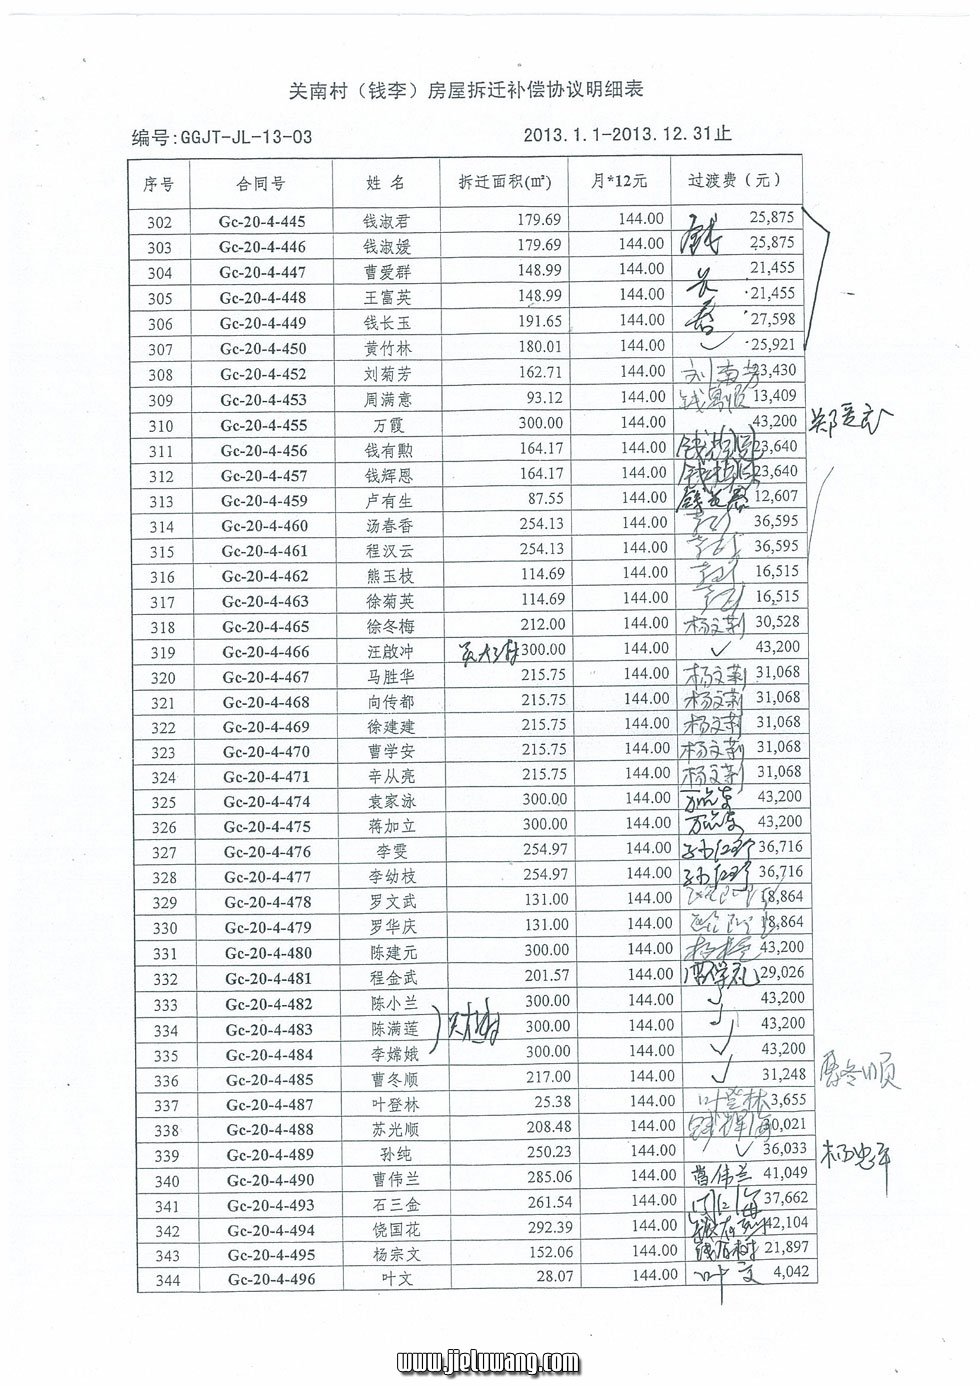 关南村（钱李）房屋拆迁补偿协议明细表
编号:GGJT-JL-13-03 2013.1.1-2013.12.31止
序号 合同号 姓名 拆迁面积(㎡) 月*12元 过渡费（元）
302 Gc-20-4-445 钱淑君 179.69 144.00 25,875
303 Gc-20-4-446 钱淑媛 179.69 144.00 25,875
304 Gc-20-4-447 曹爱群 148.99 144.00 21,455
305 Gc-20-4-448 王富英 148.99 144.00 21,455
306 Gc-20-4-449 钱长玉 191.65 144.00 27,598
307 Gc-20-4-450 黄竹林 180.01 144.00 25,921
308 Gc-20-4-452 刘菊芳 162.71 144.00 刘菊芳 23,430
309 Gc-20-4-453 周满意 93.12 144.00 13,409
310 Gc-20-4-455 万霞 300.00 144.00 43,200
311 Gc-20-4-456 钱有勲 164.17 144.00 23,640
312 Gc-20-4-457 钱辉恩 164.17 144.00 23,640
313 Gc-20-4-459 卢有生 87.55 144.00 12,607
314 Gc-20-4-460 汤春香 254.13 144.00 36,595
315 Gc-20-4-461 程汉云 254.13 144.00 36,595
316 Gc-20-4-462 熊玉枝 114.69 144.00 16,515
317 Gc-20-4-463 徐菊英 114.69 144.00 16,515
318 Gc-20-4-465 徐冬梅 212.00 144.00 杨文莉 30,528
319 Gc-20-4-466 汪啟冲 300.00 144.00 43,200
320 Gc-20-4-467 马胜华 215.75 144.00 杨文莉 31,068
321 Gc-20-4-468 向传都 215.75 144.00 杨文莉 31,068
322 Gc-20-4-469 徐建建 215.75 144.00 杨文莉 31,068
323 Gc-20-4-470 曹学安 215.75 144.00 杨文莉 31,068
324 Gc-20-4-471 辛从亮 215.75 144.00 杨文莉 31,068
325 Gc-20-4-474 袁家泳 300.00 144.00 43,200
326 Gc-20-4-475 蒋加立 300.00 144.00 43,200
327 Gc-20-4-476 李雯 254.97 144.00 36,716
328 Gc-20-4-477 李幼枝 254.97 144.00 36,716
329 Gc-20-4-478 罗文武 131.00 144.00 18,864
330 Gc-20-4-479 罗华庆 131.00 144.00 18,864
331 Gc-20-4-480 陈建元 300.00 144.00 43,200
332 Gc-20-4-481 程金武 201.57 144.00 29,026
333 Gc-20-4-482 陈小兰 300.00 144.00 43,200
334 Gc-20-4-483 陈满莲 300.00 144.00 43,200
335 Gc-20-4-484 李嫦娥 300.00 144.00 43,200
336 Gc-20-4-485 曹冬顺 217.00 144.00 31,248
337 Gc-20-4-487 叶登林 25.38 144.00 叶登林 3,655
338 Gc-20-4-488 苏光顺 208.48 144.00 30,021
339 Gc-20-4-489 孙纯 250.23 144.00 36,033
340 Gc-20-4-490 曹伟兰 285.06 144.00 曹伟兰 41,049
341 Gc-20-4-493 石三金 261.54 144.00 37,662
342 Gc-20-4-494 饶国花 292.39 144.00 42,104
343 Gc-20-4-495 杨宗文 152.06 144.00 21,897
344 Gc-20-4-496 叶文 28.07 144.00 叶文 4,042
www.jieluwang.com